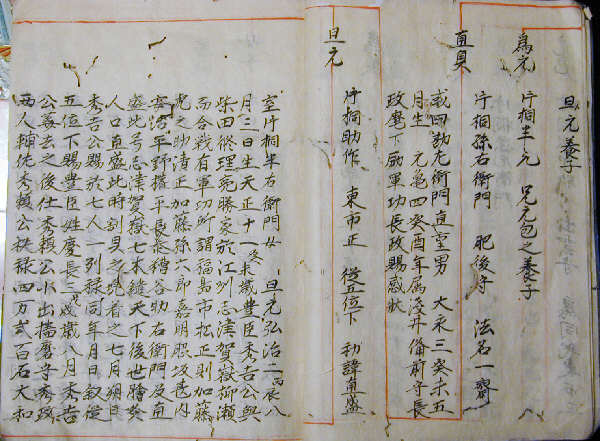 旦元養子
為元 片桐半之允 兄元包之養子
直貞 片桐孫右衛門 肥後守 法名一齋
或曰勘左衛門直重男 大永三癸未五
月生 元亀四癸酉年属浅井備前守長
政麾下励軍功長政賜感状
旦元 片桐助作 東市正 従五位下 初諱直盛
室片桐半右衛門女 旦元弘治二丙辰八
月三日生天正十一癸未歳豊臣秀吉公與
柴田修理亮勝家於江州志津賀嶽柳瀬
而合戦有軍功所謂福島市松正則加藤
虎之助清正加藤孫六郎嘉明脇坂甚内
安治平野權平長泰糟谷助右衛門及直
盛此号志津賀嶽七本鑓天下後世膾炙
人口直盛此時割貝之 着之七月朔日
秀吉公賜莊七人一列禄同年月日叙従
五位下賜豊臣姓慶長三戊戌歳八月秀吉
公薨去之後仕秀頼公小出播磨守秀政
両人輔佐秀頼公扶禄四万弐百石大和